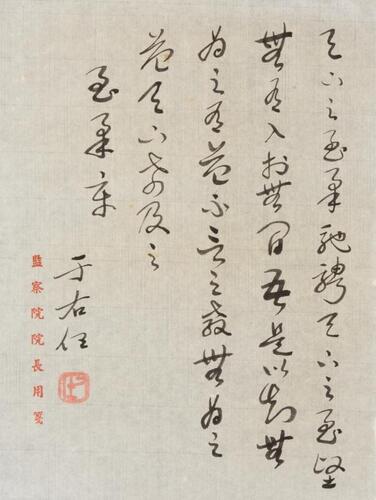 天下之至柔馳騁天下之至堅
無有入於無間吾是以知無
為之有益不言之教無為之
益天下希及之
至柔章
于右任
監察院院長用箋